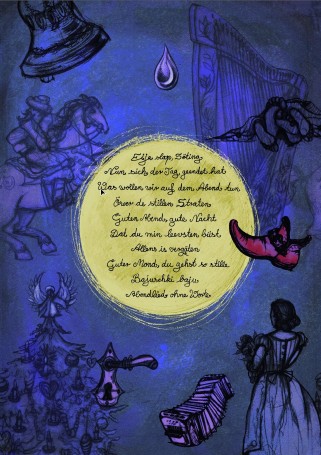 Elsje slap, Söting
Nun sich der Tag geendet hat
Was wollen wir auf dem Abend tun
Över de stillen Straten
Guten Abend, gute Nacht
Dat du min leevsten büst
Allens is vergäten
Guter Mond, du gehst so stille
Bajuschki baju
Abendlied ohne Worte